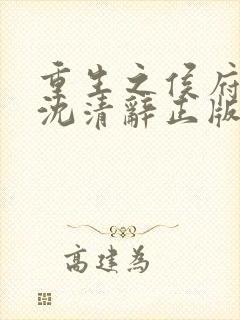 重生之侯府
沈清辭正版
高建為